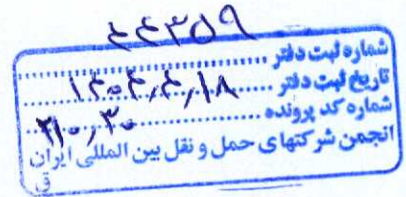 ۴۴۳۵۹
شماره ثبت دفتر ....................
تاریخ ثبت دفتر ۱۴۰۴,۴,۱۸
شماره کد پرونده ۳۱۰,۳۰
انجمن شرکتهای حمل و نقل بین المللی ایران
ق